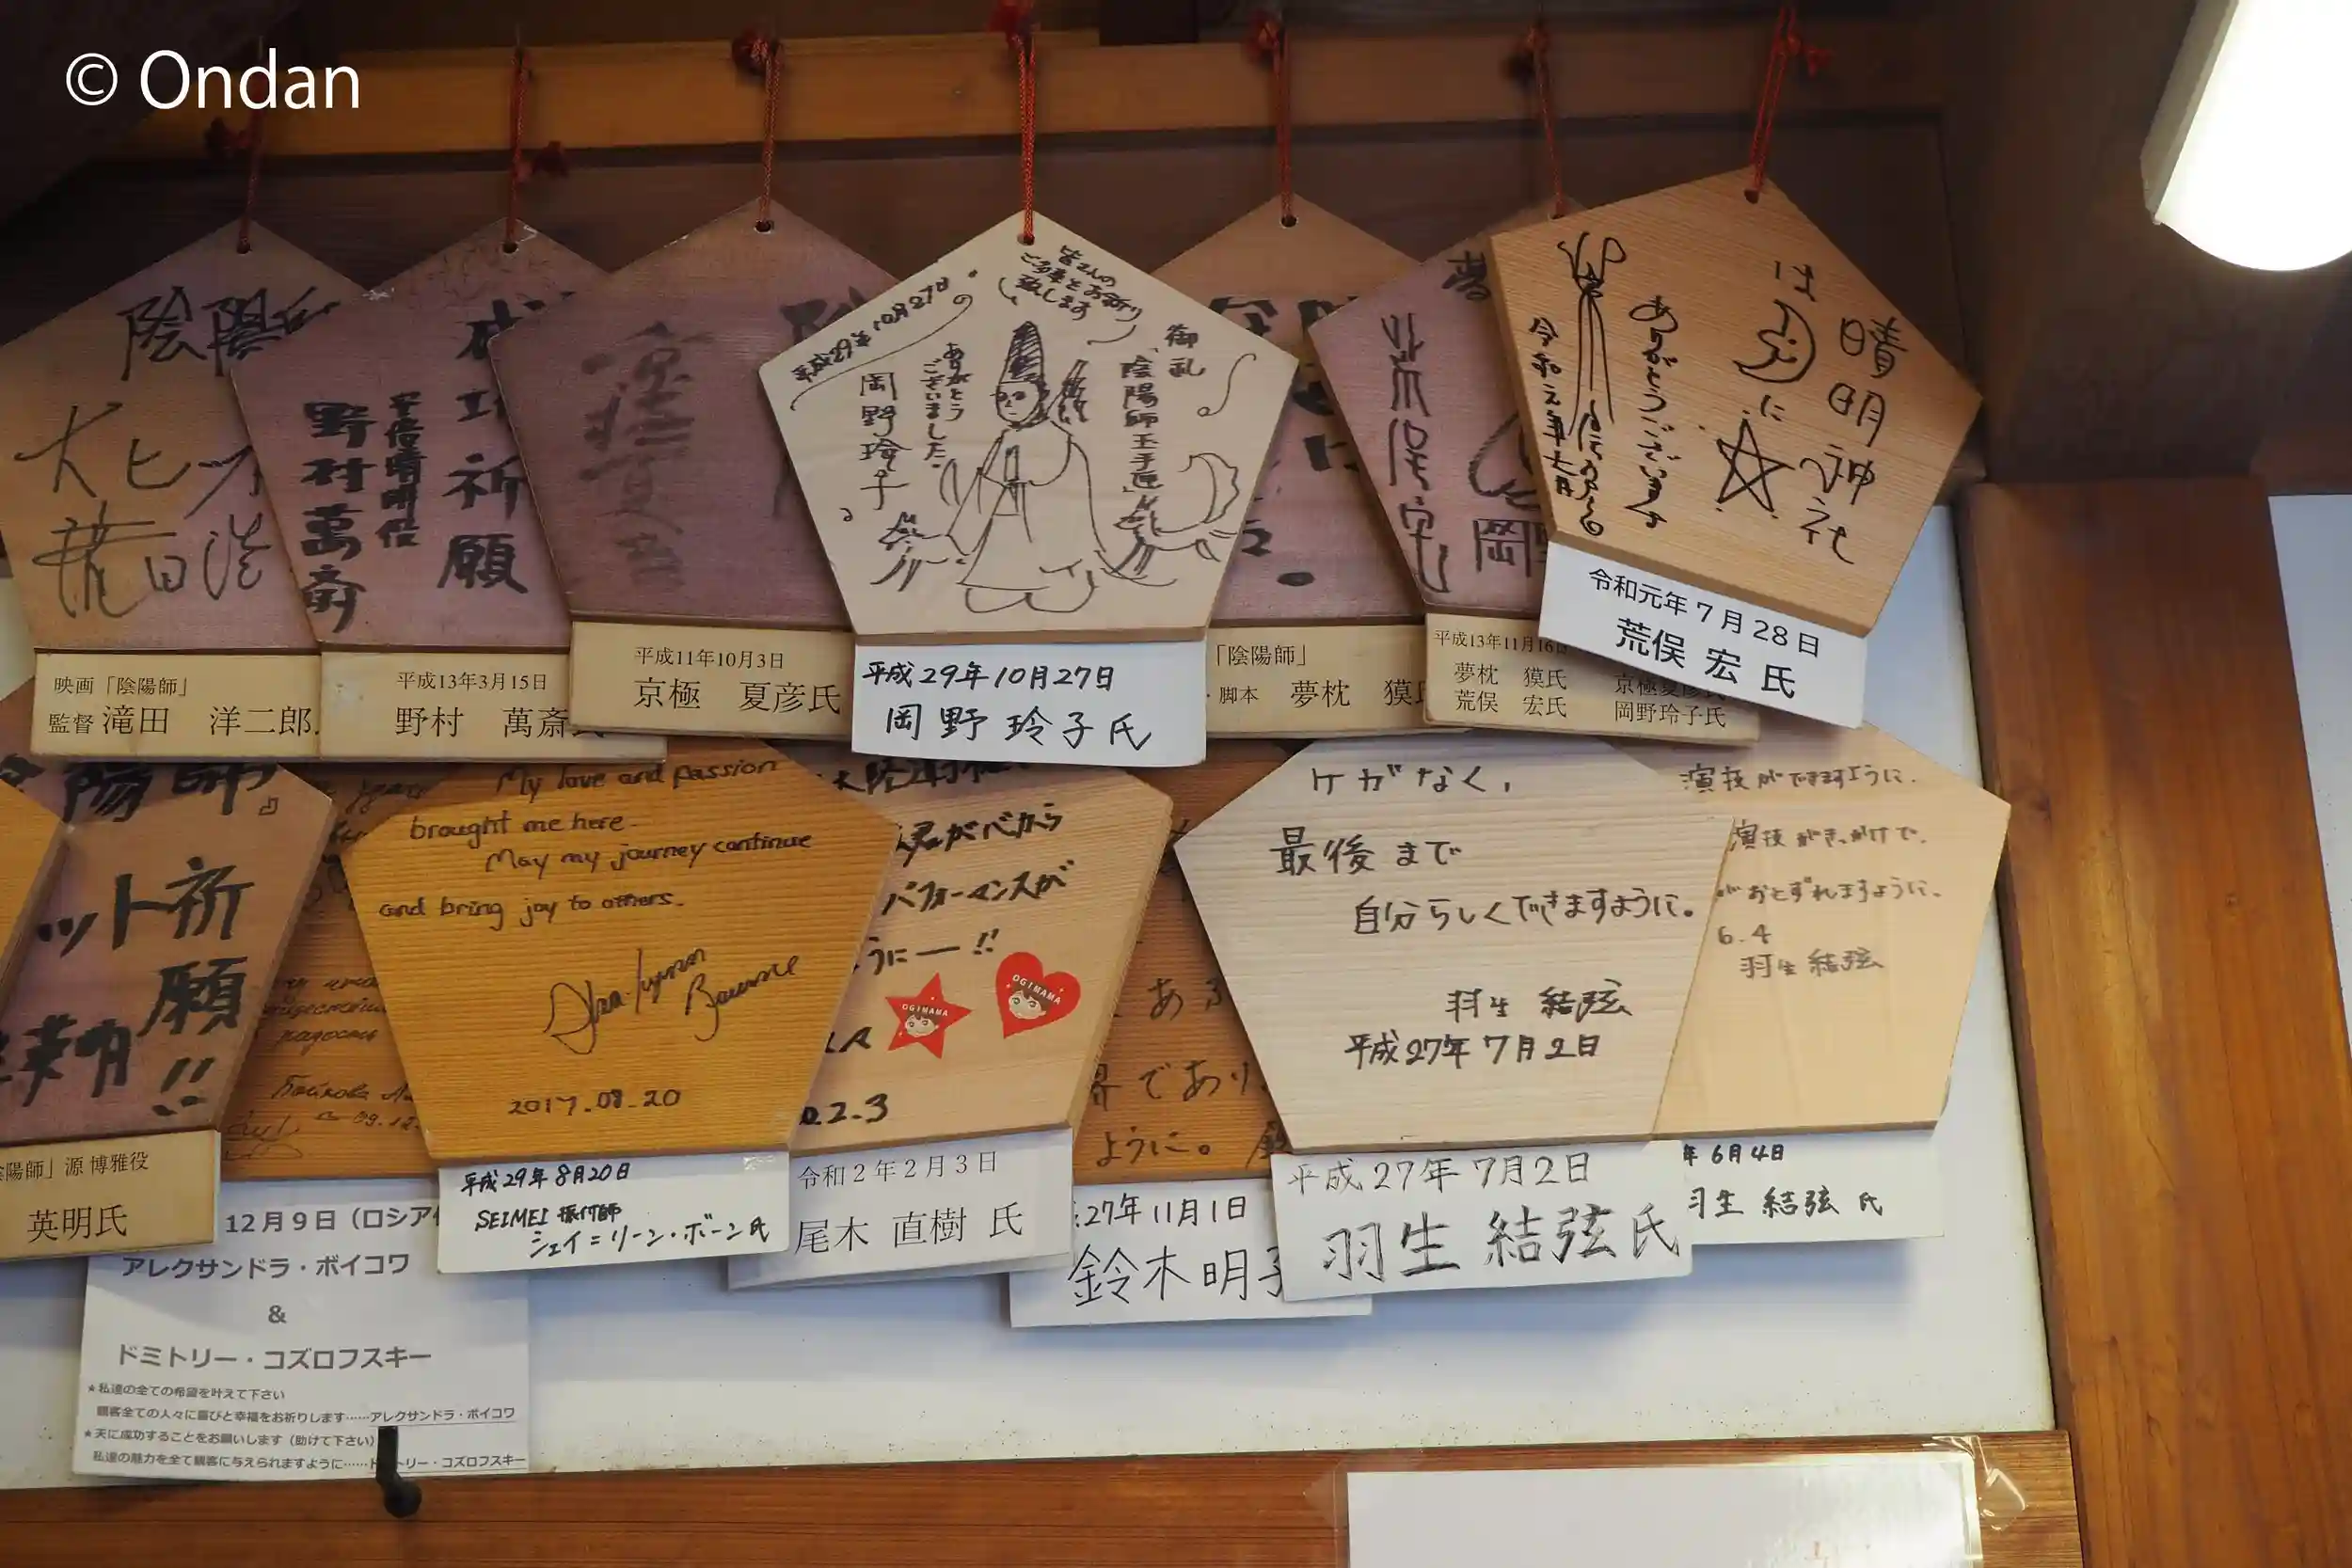 © Ondan
陰陽師
大ヒッ
滝田洋
映画「陰陽師」
監督 滝田 洋二郎
成功祈願
安倍晴明役
野村萬斎
平成13年3月15日
野村 萬斎氏
平成11年10月3日
京極 夏彦氏
皆さんの
ご多幸をお祈り
致します
御礼
陰陽師玉手匣
ありがとう
ございました。
岡野玲子
平成29年10月27日
平成29年10月27日
岡野玲子氏
「陰陽師」
・脚本 夢枕 獏氏
夢
荒俣宏
岡
平成13年11月16日
夢枕 獏氏 京極夏彦氏
荒俣 宏氏 岡野玲子氏
晴明神社
は
に
ありがとうございます
令和元年七月
令和元年7月28日
荒俣 宏 氏
陽師』
ット祈
願!!
英明
陰陽師」源 博雅役
英明氏
My love and passion
brought me here.
May my journey continue
and bring joy to others.
Shae-Lynn
Bourne
2017.08.20
平成29年8月20日
SEIMEI 振付師
シェイ=リーン・ボーン氏
君が心から
パフォーマンスが
うにー!!
OGIMAMA
OGIMAMA
2.3
令和2年2月3日
尾木 直樹 氏
であり
ように。
27年11月1日
鈴木明子
ケガなく,
最後まで
自分らしくできますように。
羽生 結弦
平成27年7月2日
平成27年7月2日
羽生 結弦氏
演技ができますように.
演技がきっかけで.
がおとずれますように.
6.4
羽生 結弦
年6月4日
羽生 結弦 氏
12月9日(ロシア
アレクサンドラ・ボイコワ
&
ドミトリー・コズロフスキー
★私達の全ての希望を叶えて下さい
観客全ての人々に喜びと幸福をお祈りします……アレクサンドラ・ボイコワ
★天に成功することをお願いします(助けて下さい)
私達の魅力を全て観客に与えられますように……ドミトリー・コズロフスキー